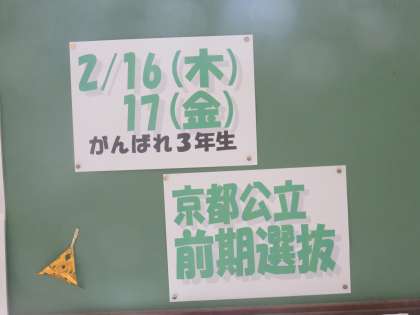 2/16(木)
17(金)
がんばれ3年生
京都公立
前期選抜